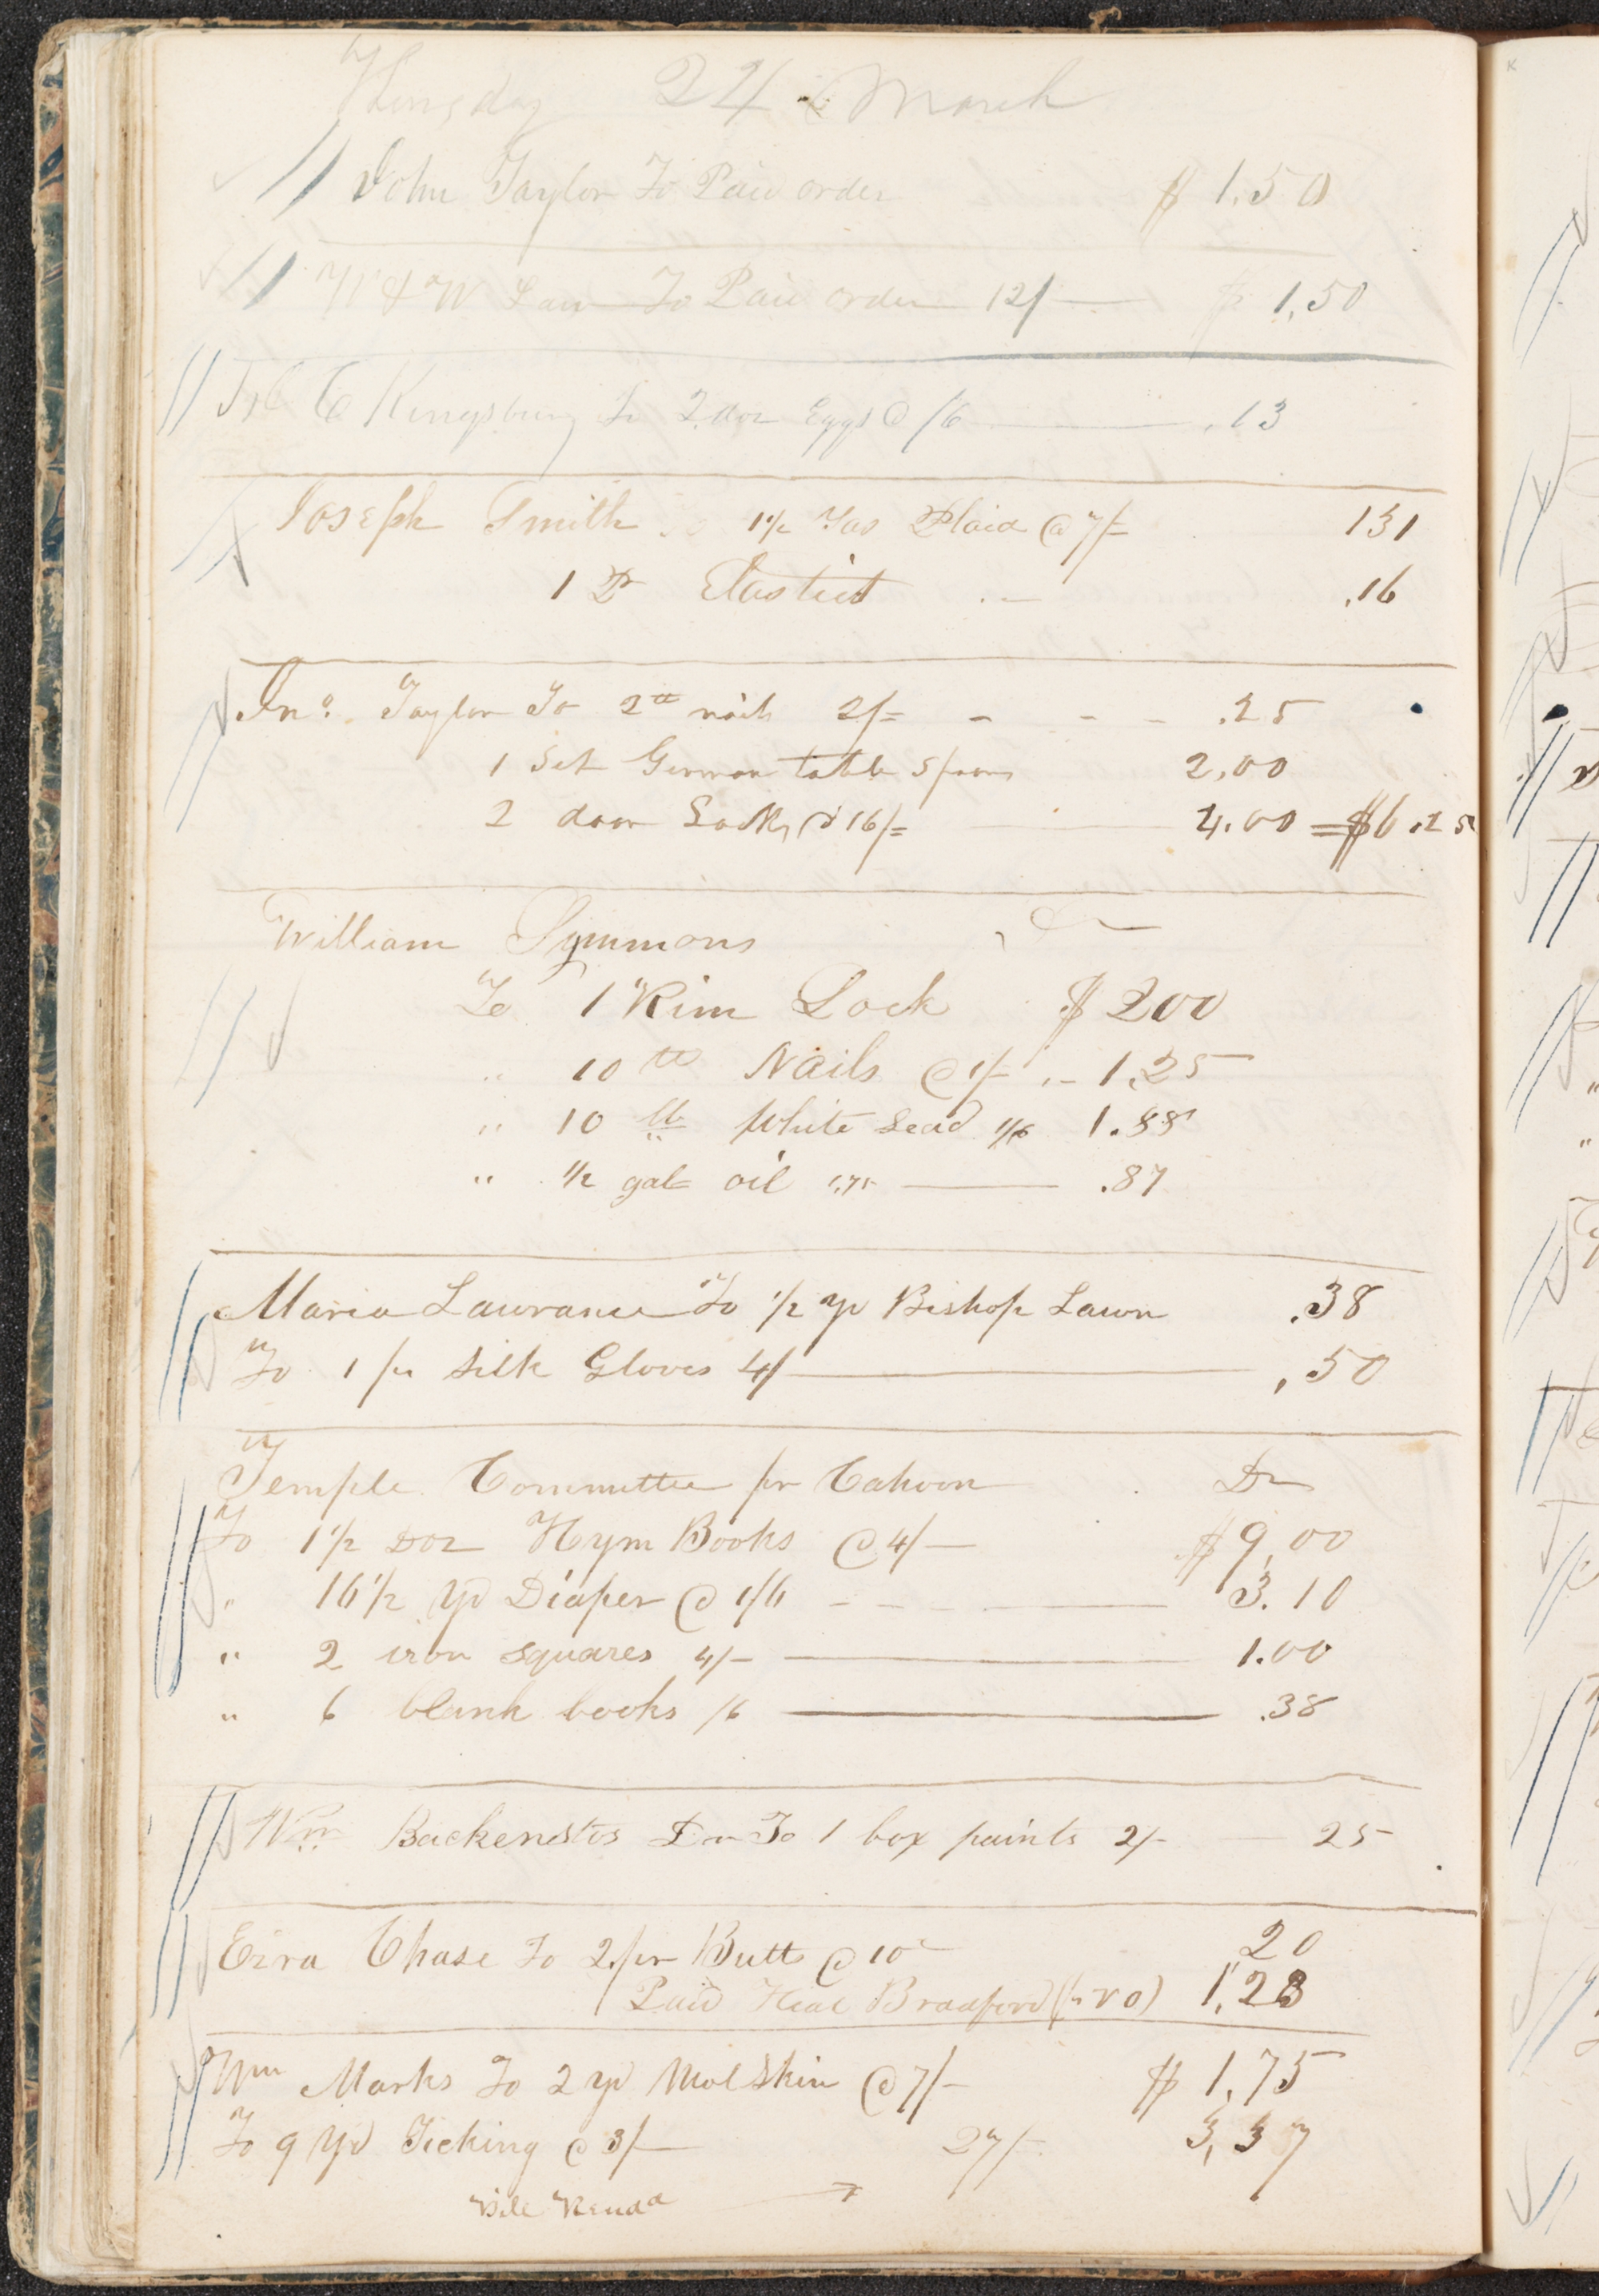 Thursday 24 March
John Taylor To Paid order $ 1,50
W & W Law To Paid order 12/— $ 1,50
C Kingsbury To 2 doz Eggs @ /6 .13
Joseph Smith 1½ Yds Plaid @ 7/= 131
1 Pr Elastict .16
Jno. Taylor To 2 tt nails 2/= - - - .25
1 Set German table Spoons 2.00
2 door Locks @ 16/= 4.00 = $6.25
William Symmons Dr
To 1 Rim Lock $ 200
" 10 tt Nails @ 1/- 1,25
" 10 lb White Lead 1/6 1.88
" ½ gal oil 1.75 .87
Maria Lawrance To ½ yd Bishop Lawn .38
To 1 pr Silk Gloves 4/ ,50
Temple Committee pr Cahoon Dr
To 1½ Doz Hym Books @ 4/— $9,00
" 16½ yd Diaper @ 1/6 3.10
" 2 iron squares 4/- 1.00
" 6 blank books /6 .38
Wm Backenstos Dr To 1 box paints 2/- 25
Ezra Chase To 2 pr Butts @ 10c 20
Paid Heal Bradford 1,23
Wm Marks To 2 yd Molskin @ 7/- $ 1,75
To 9 Yd Ticking @ 3/— 27/- 3,37
Bill Rendd